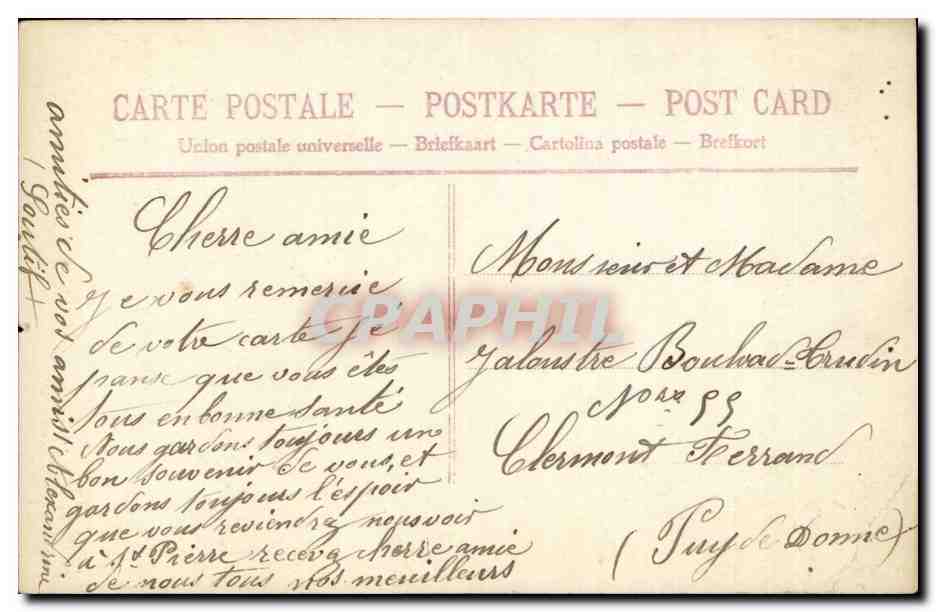 CARTE POSTALE — POSTKARTE — POST CARD
Union postale universelle — Briefkaart — Cartolina postale — Brefkort
Cherre amie
Je vous remercie
de votre carte Je
panse que vous êtes
tous en bonne santé
Nous gardons toujours un
bon souvenir de vous, et
gardons toujours l'espoir
que vous reviendrez nous voir
à St Pierre receva cherre amie
de nous tous nos meuilleurs
amitiés de vos amis Alexandrine
Monsieur et Madame
Jaloustre Boulvad-Trudin
No 55
Clermont Ferrand
(Puy de Donne)
CPAPHIL